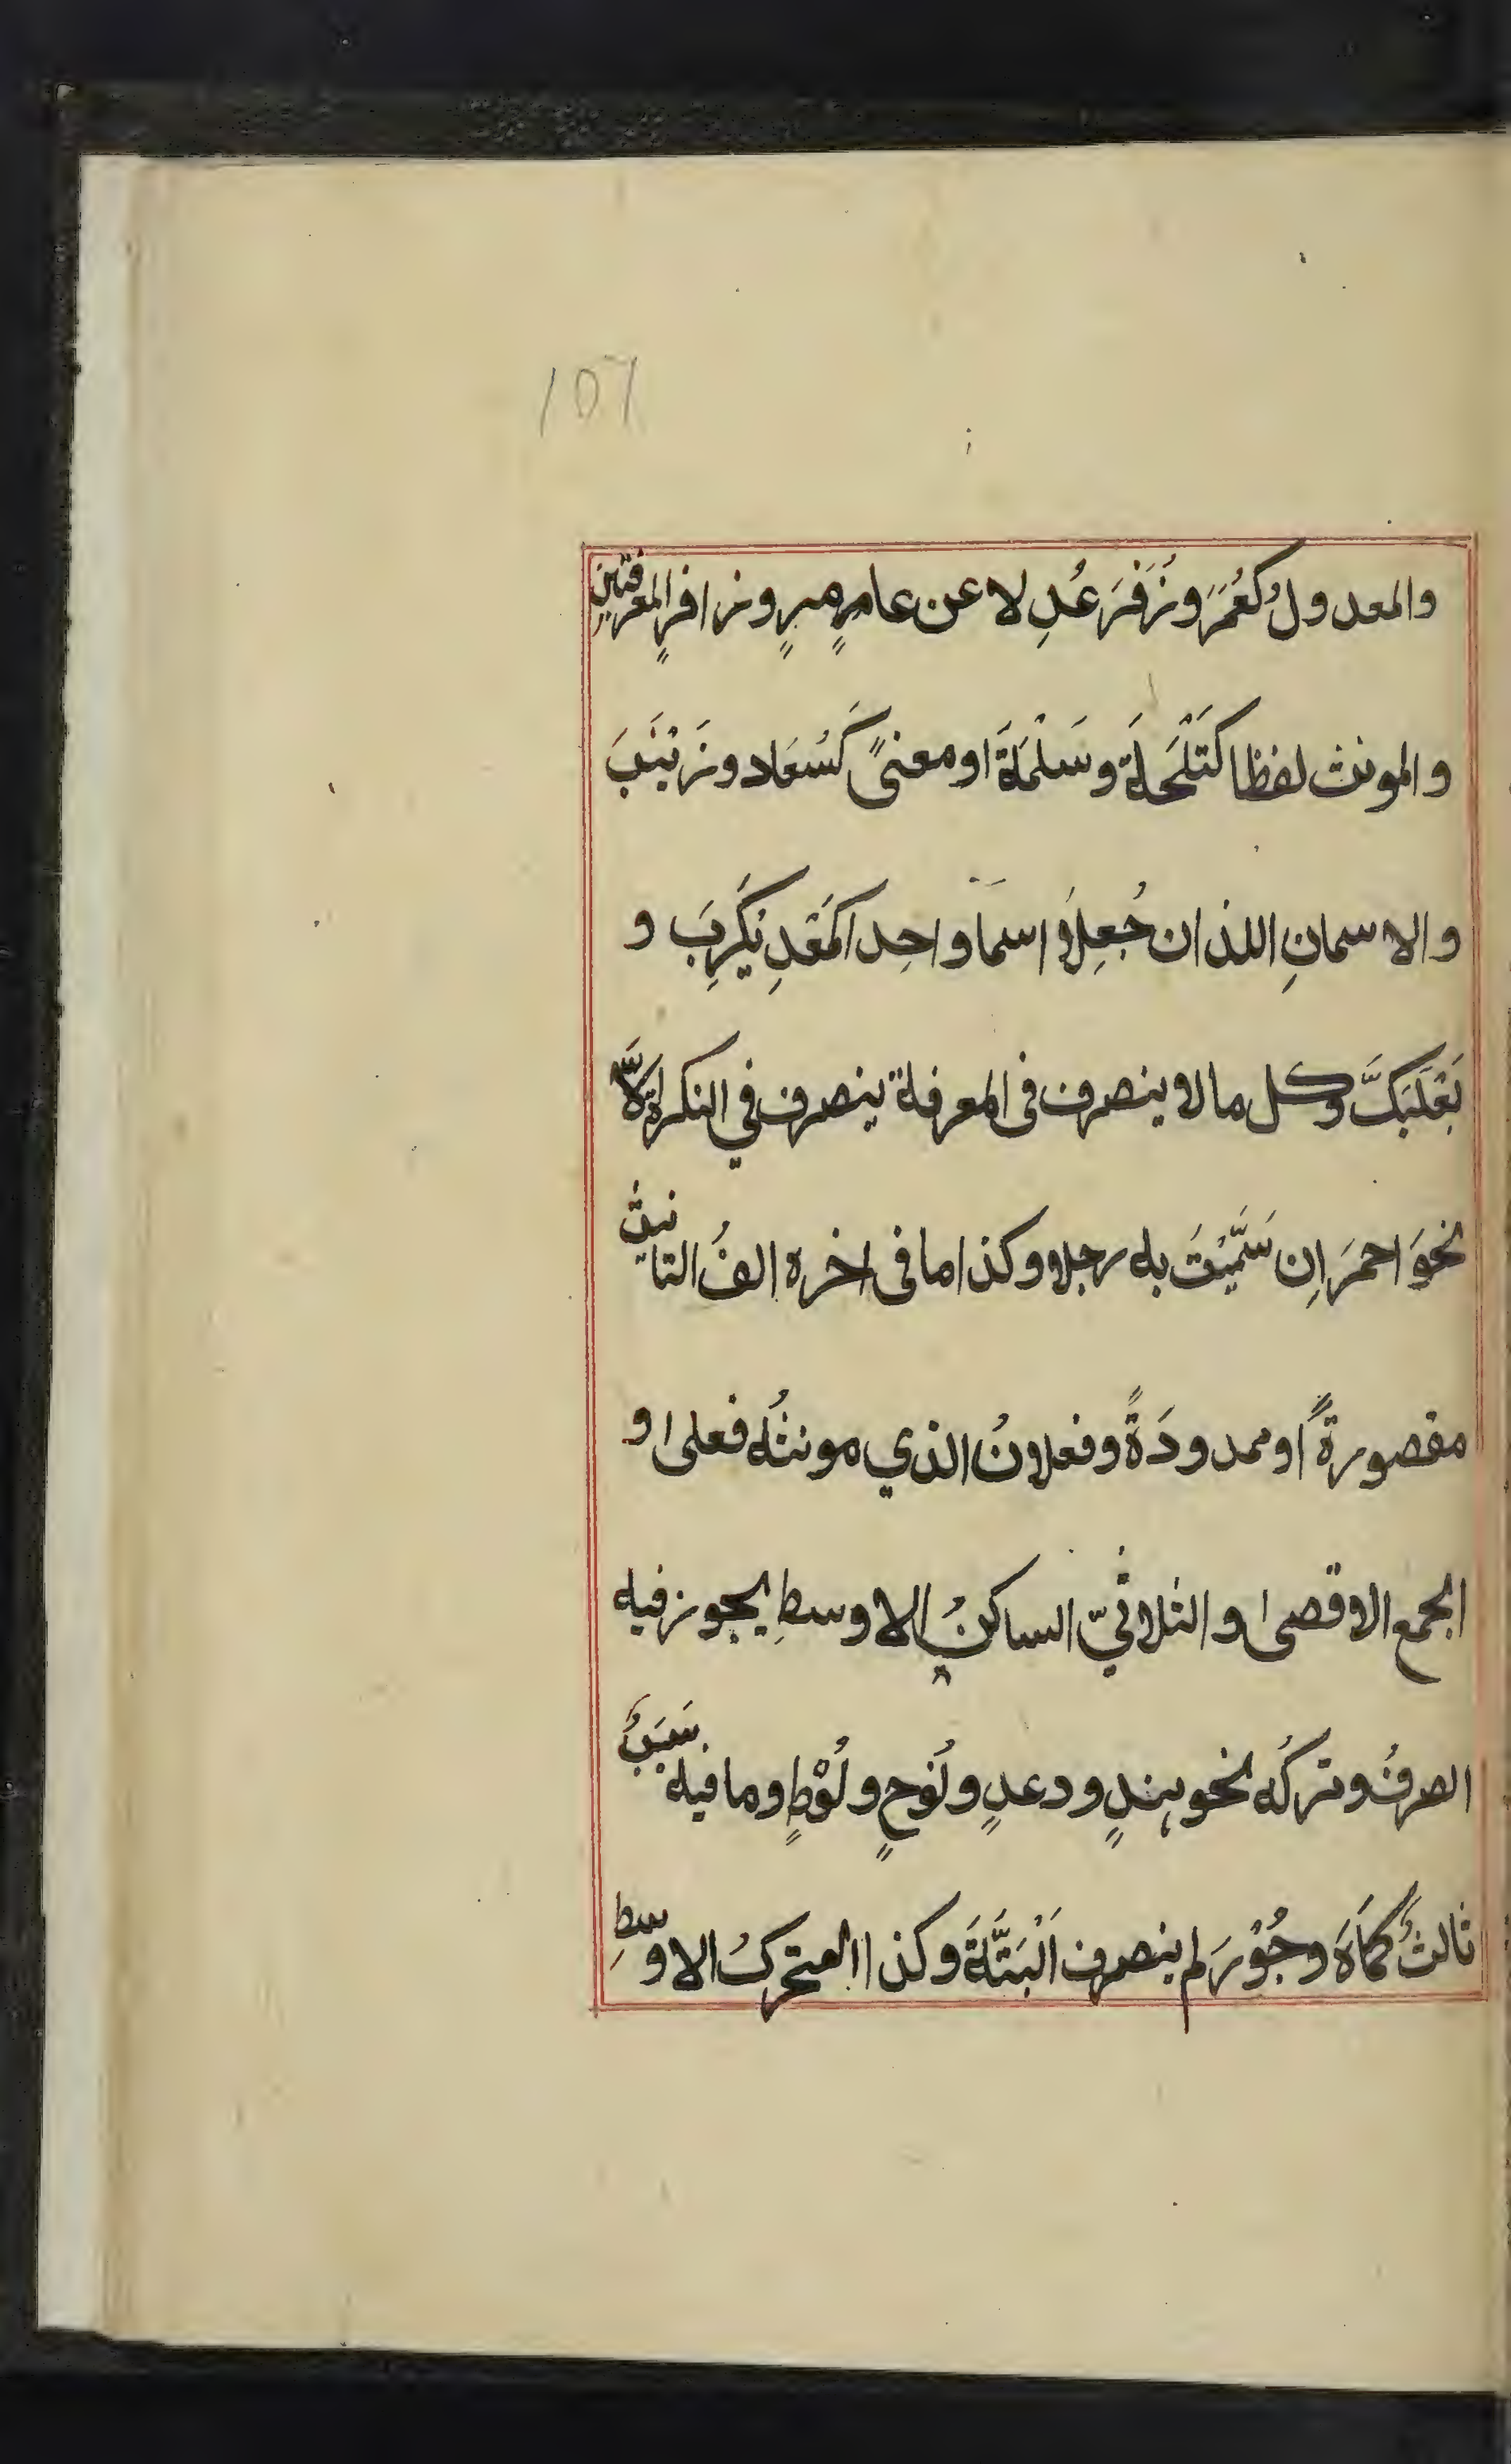 107
والمعدولُ كعُمَرَ وزُفَرَ عُدِلا عن عامرٍ وزافرٍ المعرفتين
والمونث لفظا كَطَلْحَةَ وسَلْمَةَ او معنىً كَسُعَاد وزَيْنَبَ
والاسمانِ اللذان جُعِلَا اسما واحدا كمَعْدِيكَرِبَ و
بَعْلَبَكَّ وكل مالا ينصرف فى المعرفة ينصرف في النكرة الَّا
نحوَ احمرَ اِن سَمَّيْتَ به رجلا وكذا ما فى اخره الفُ التانيث
مقصورةً او ممدودَةً وفعلانُ الذي مونثُه فعلى او
الجمع الاقصى والثلاثيّ الساكنُ الاوسطِ يجوز فيه
الصرفُ وتركُه نحو هندٍ ودعدٍ ونُوحٍ ولُوْطٍ وما فيه سَبَبٌ
ثالثٌ كمَاهَ وجُوْرَ لم ينصرف اَلْبَتَّةَ وكذا المتحركُ الاوسطِ